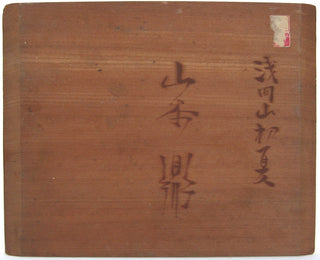 浅間山初夏
山本鼎